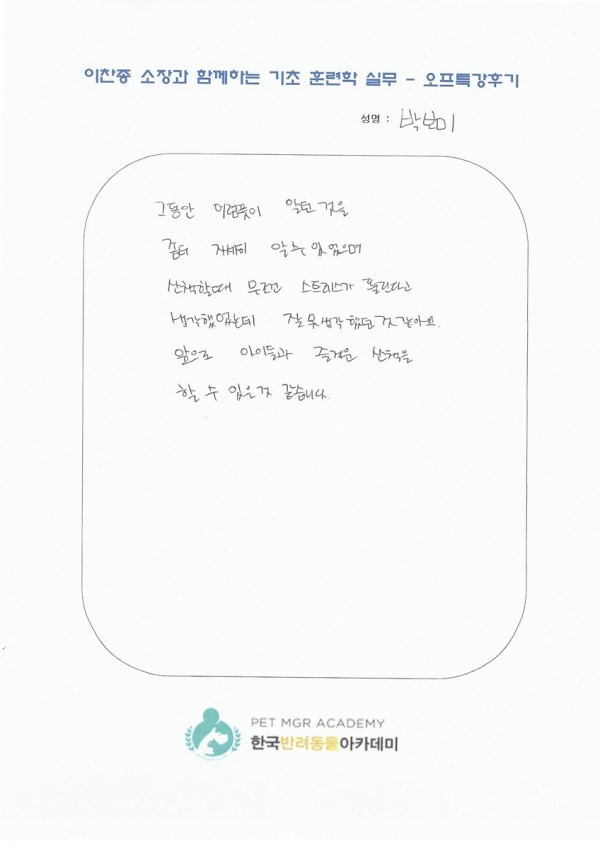 이찬종 소장과 함께하는 기초 훈련학 실무 - 오프특강후기
성명 : 박보미
그동안 어렴풋이 알던 것을
좀더 자세히 알수 있었으며
산책할때 무조건 스트레스가 풀린다고
생각했었는데 잘못생각했던것 같아요.
앞으로 아이들과 즐거운 산책을
할 수 있을것 같습니다.
PET MGR ACADEMY
한국반려동물아카데미